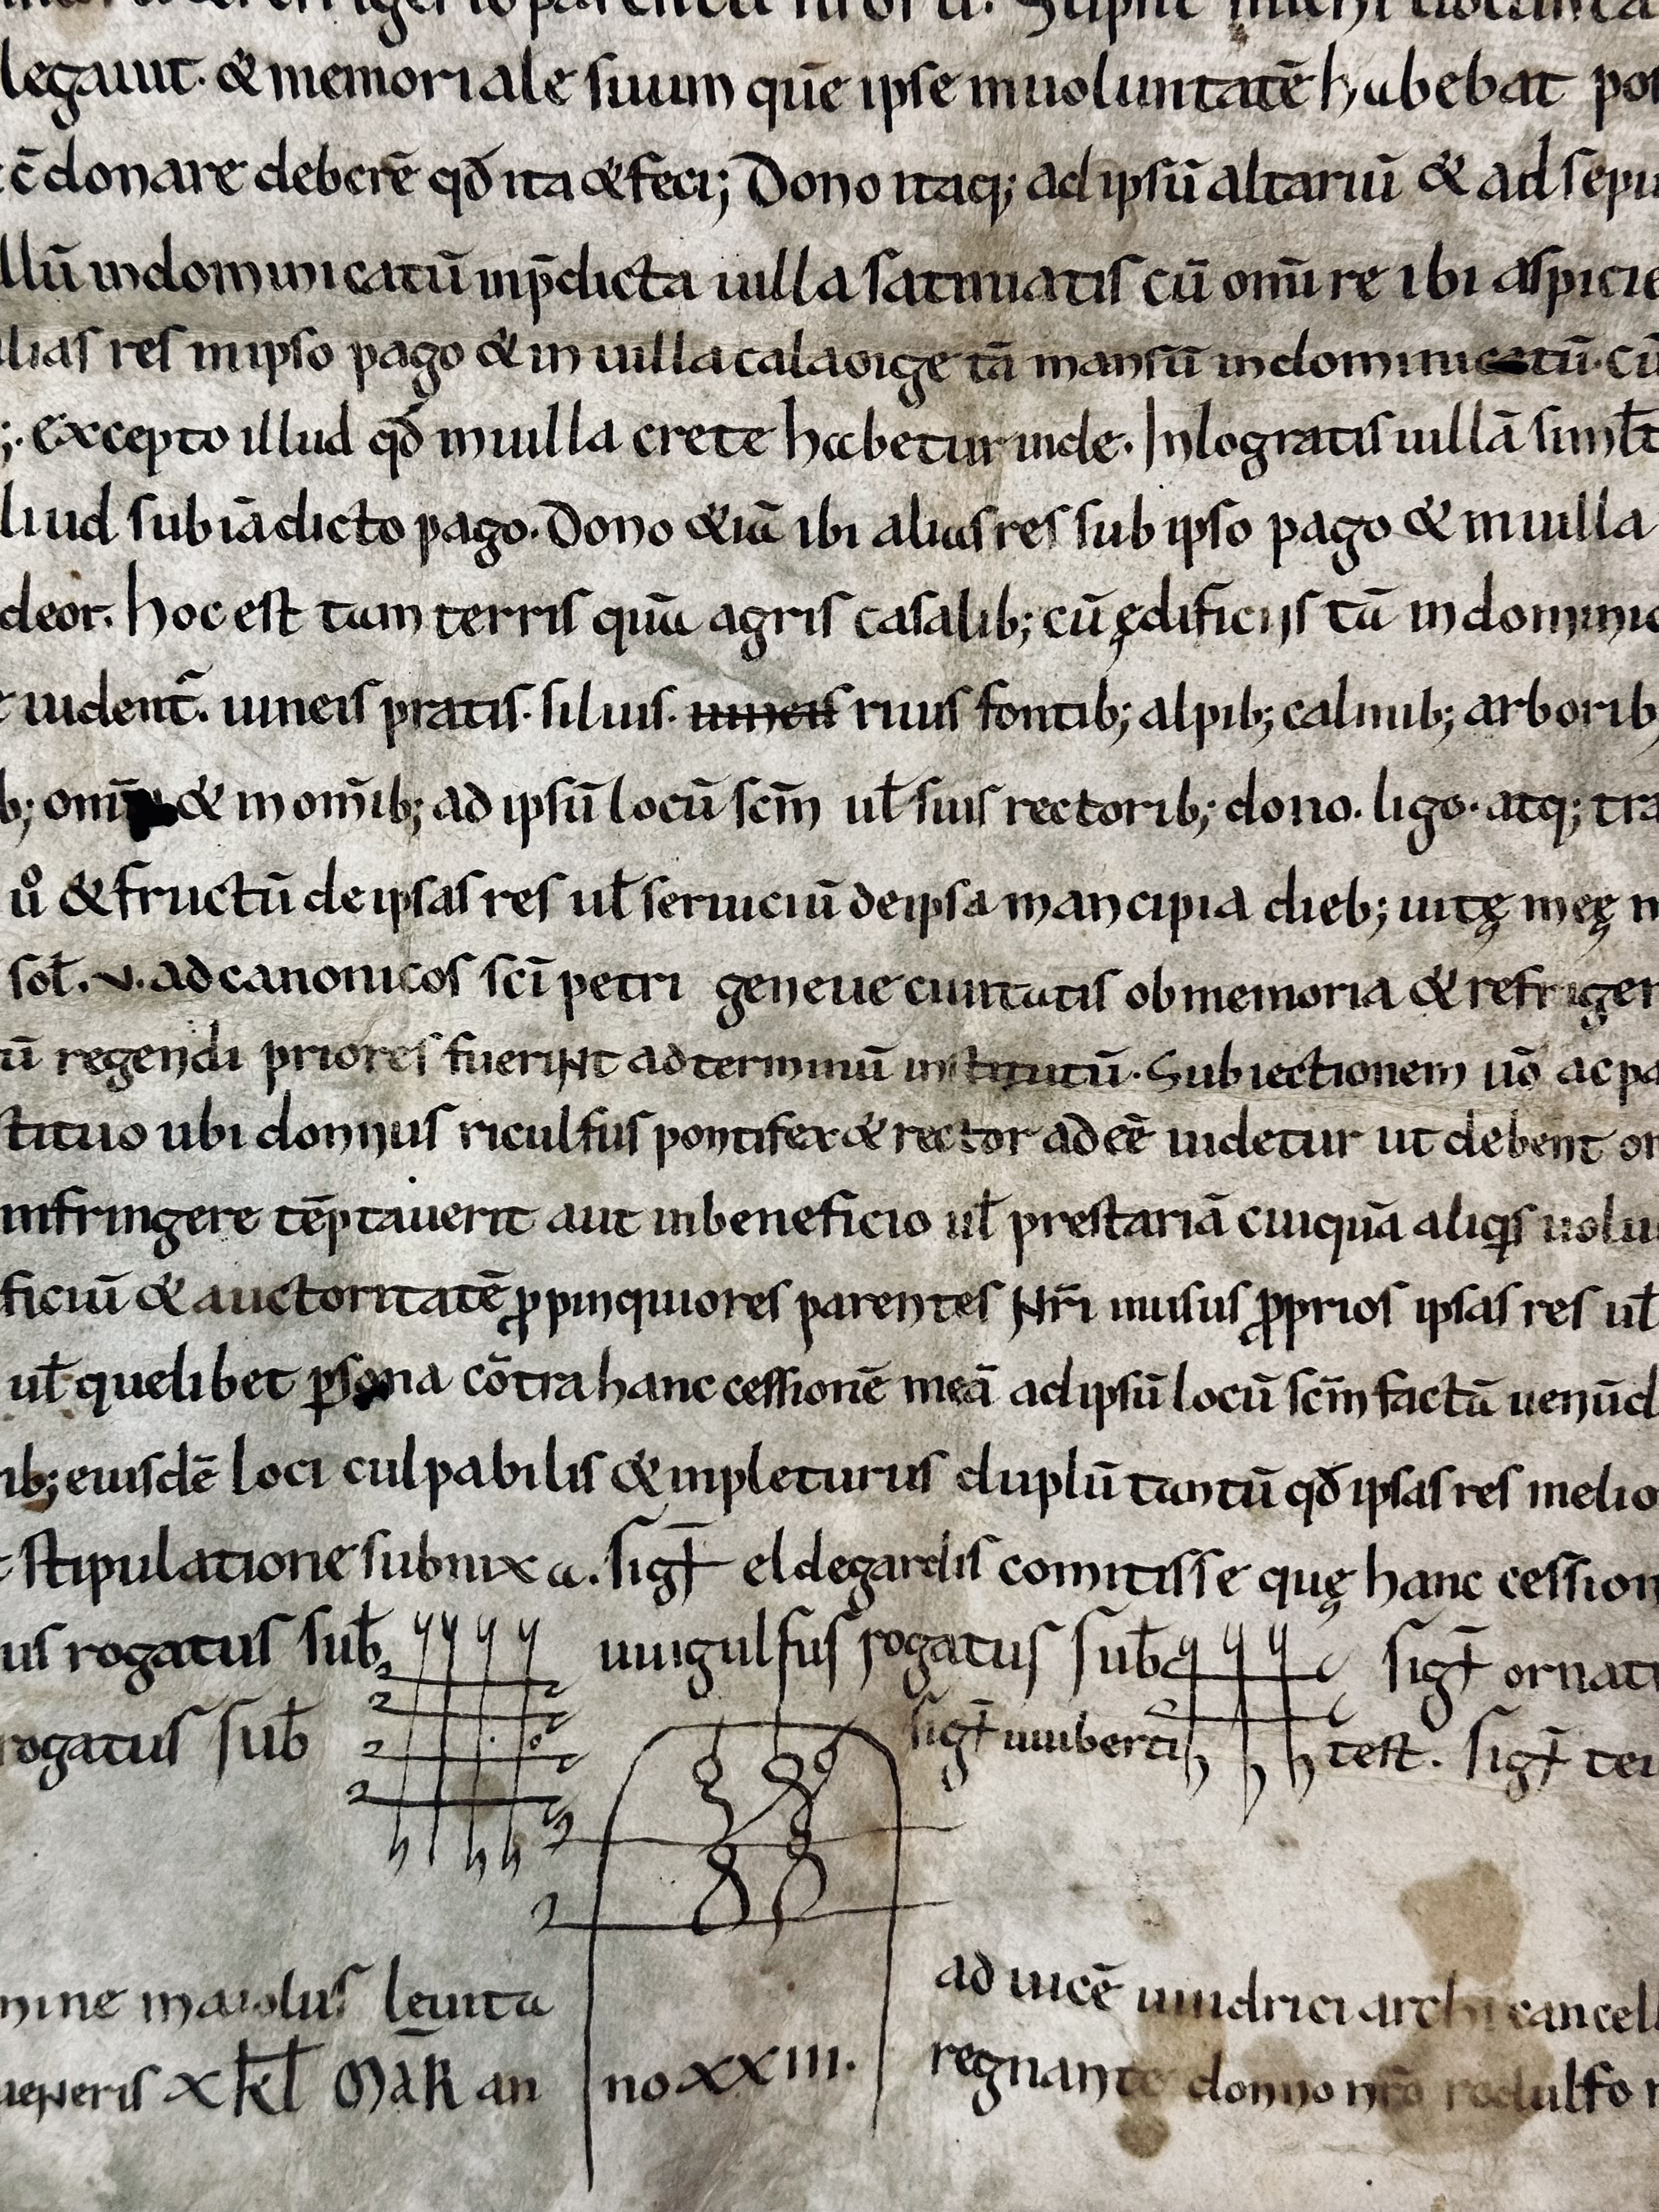 refrigerio parentu
legauit. & memoriale suum quē ipse inuoluntatē habebat
c̄donare deberē qđ ita & feci; Dono itaq; ad ipsū altariū & ad sepu
llū indominicatū inp̄dicta uilla satiniatis cū om̄i re ibi aspicie
lias res inipso pago & in uilla calaoige tā mansū indominicatū. cū
;. Excepto illud qđ inuilla crete habetur inde. Inlogratis uillā simłt
liud sub iādicto pago. Dono &iā ibi alias res sub ipso pago & inuilla
deor. hoc est tam terris quā agris casalib; cū ędificiis tā indominic
uident̄. uineis pratis. siluis. riuis fontib; alpib; calmib; arborib;
b; & in om̄ib; ad ipsū locū scm̄ uł suis rectorib; dono. ligo. atq; tra
& fructū de ipsas res uł seruiciū de ipsa mancipia dieb; uitę męę
soł. v. ad canonicos sc̄i petri geneue ciuitatis ob memoria & refriger
ū regendi priores fuerint ad terminū institutū. Subiectionem uō ac pa
stituo ubi donnus riculfus pontifex & rector adeē uidetur ut debent
infringere tēptauerit aut inbeneficio uł prestariā cuiquā aliqis uolu
ficiū & auctoritatē ꝓpinquiores parentes nr̄i inusus ꝓprios ipsas res uł
uł quelibet ꝑsona cōtra hanc cessionē meā ad ipsū locū scm̄ factā uenūd
ib; eiusdē loci culpabilis & inpleturus duplū tantū qđ ipsas res melio
stipulatione subnixa. sigt̄ eldegardis comitisse quę hanc cession
us rogatus sub̄ uuigulfus rogatus sub̄ sigt̄ ornat
rogatus sub̄ sigt̄ uuiberti test. sigt̄ tei
mine maiolus leuita ad uicē uuidrici archicancell
ueneris x kł mār anno xxiii. regnante donno nr̄o rodulfo